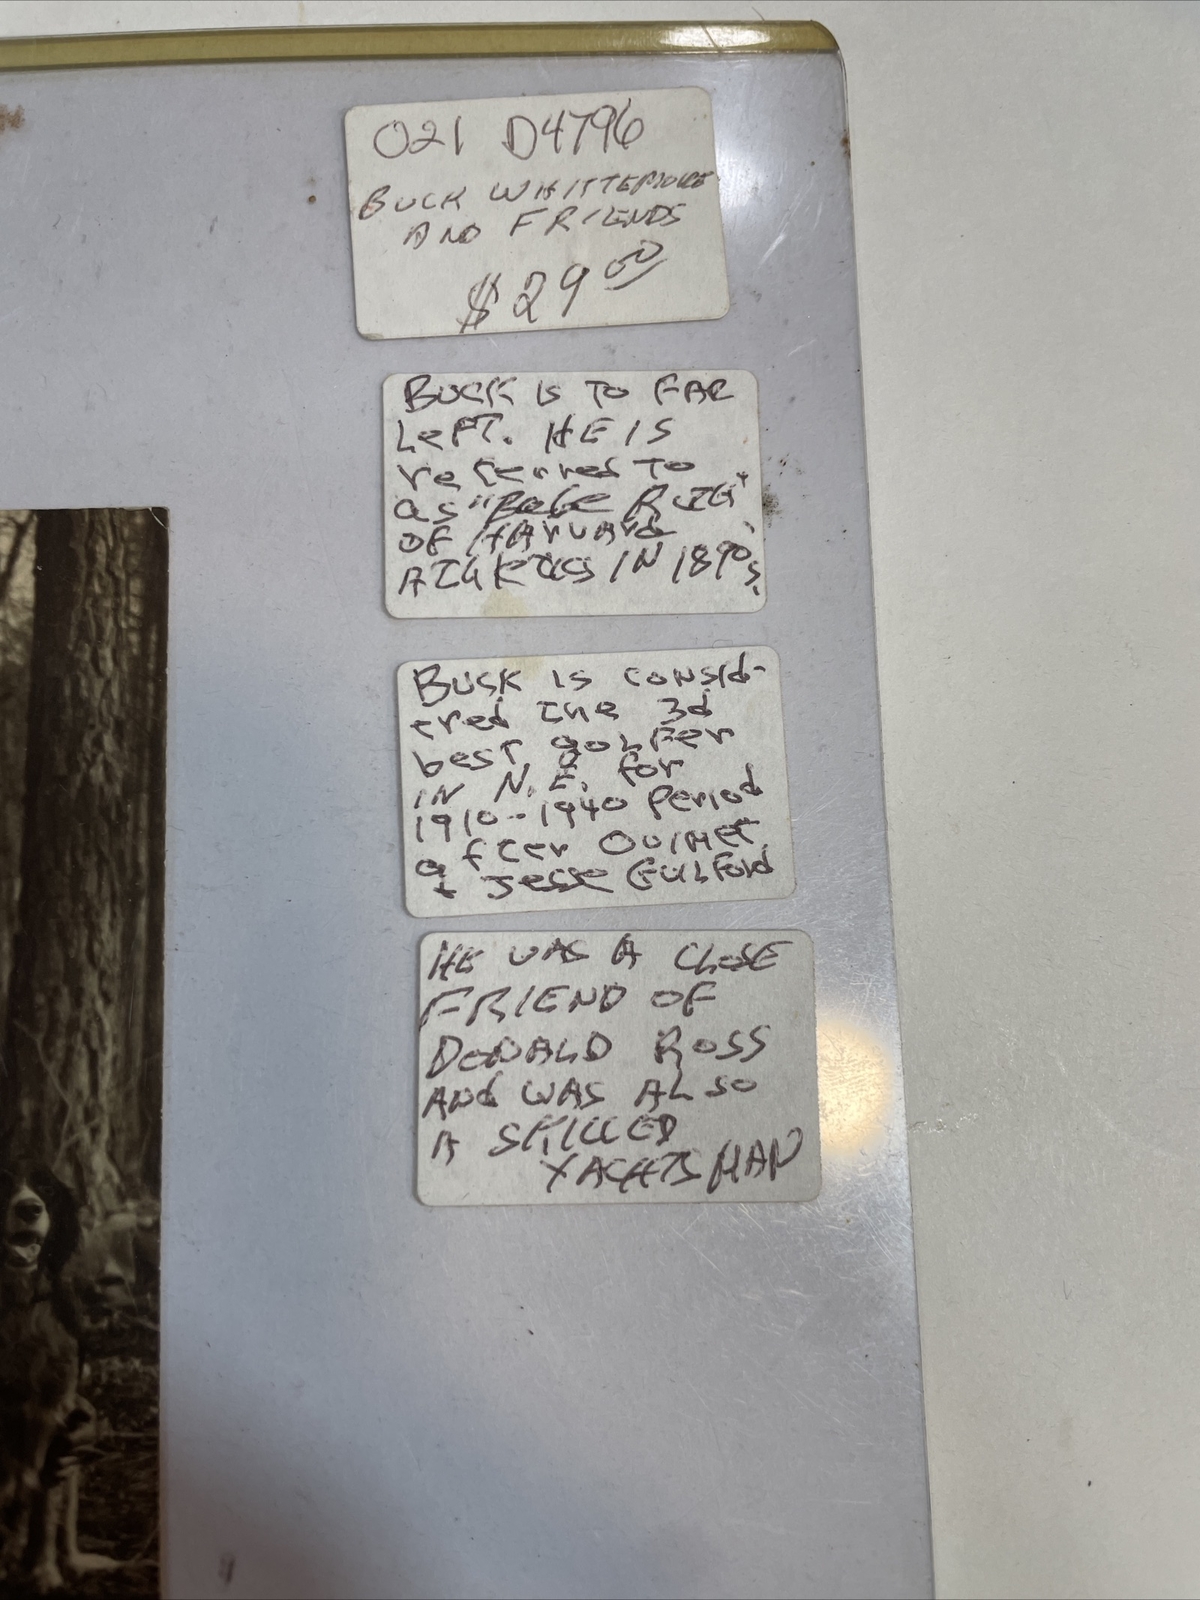 021 D4796
BUCK WHITTEMORE
AND FRIENDS
$29.00
BUCK IS TO FAR
LEFT. HE IS
referred TO
as "Babe RUTH"
OF HARVARD
ATHLETICS IN 1890s.
BUCK IS CONSID-
ered THE 3d
best GOLFER
IN N.E. for
1910--1940 Period
after OUIMET
+ Jesse GUILFORD
HE WAS A CLOSE
FRIEND OF
DONALD ROSS
AND WAS ALSO
A SKILLED
YACHTSMAN